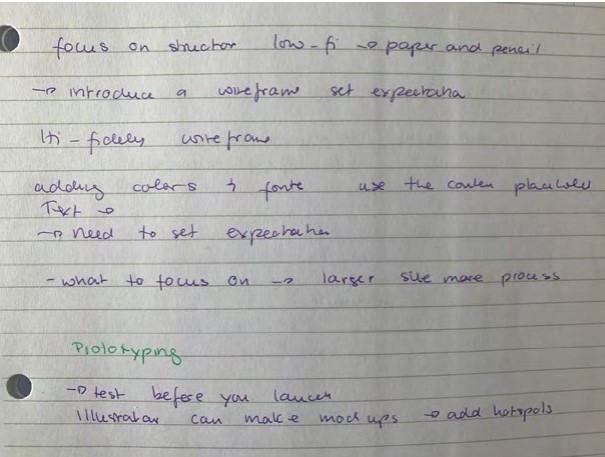 focus on structor low-fi → paper and pencil
→ introduce a wireframe set expectaha
Hi-fidely wireframe
adding colors & fonts use the conten placeholer
Text →
→ need to set expectahas
- what to focus on → larger site more process
Prototyping
→ test before you launch
Illustrator can make mockups → add hotspots